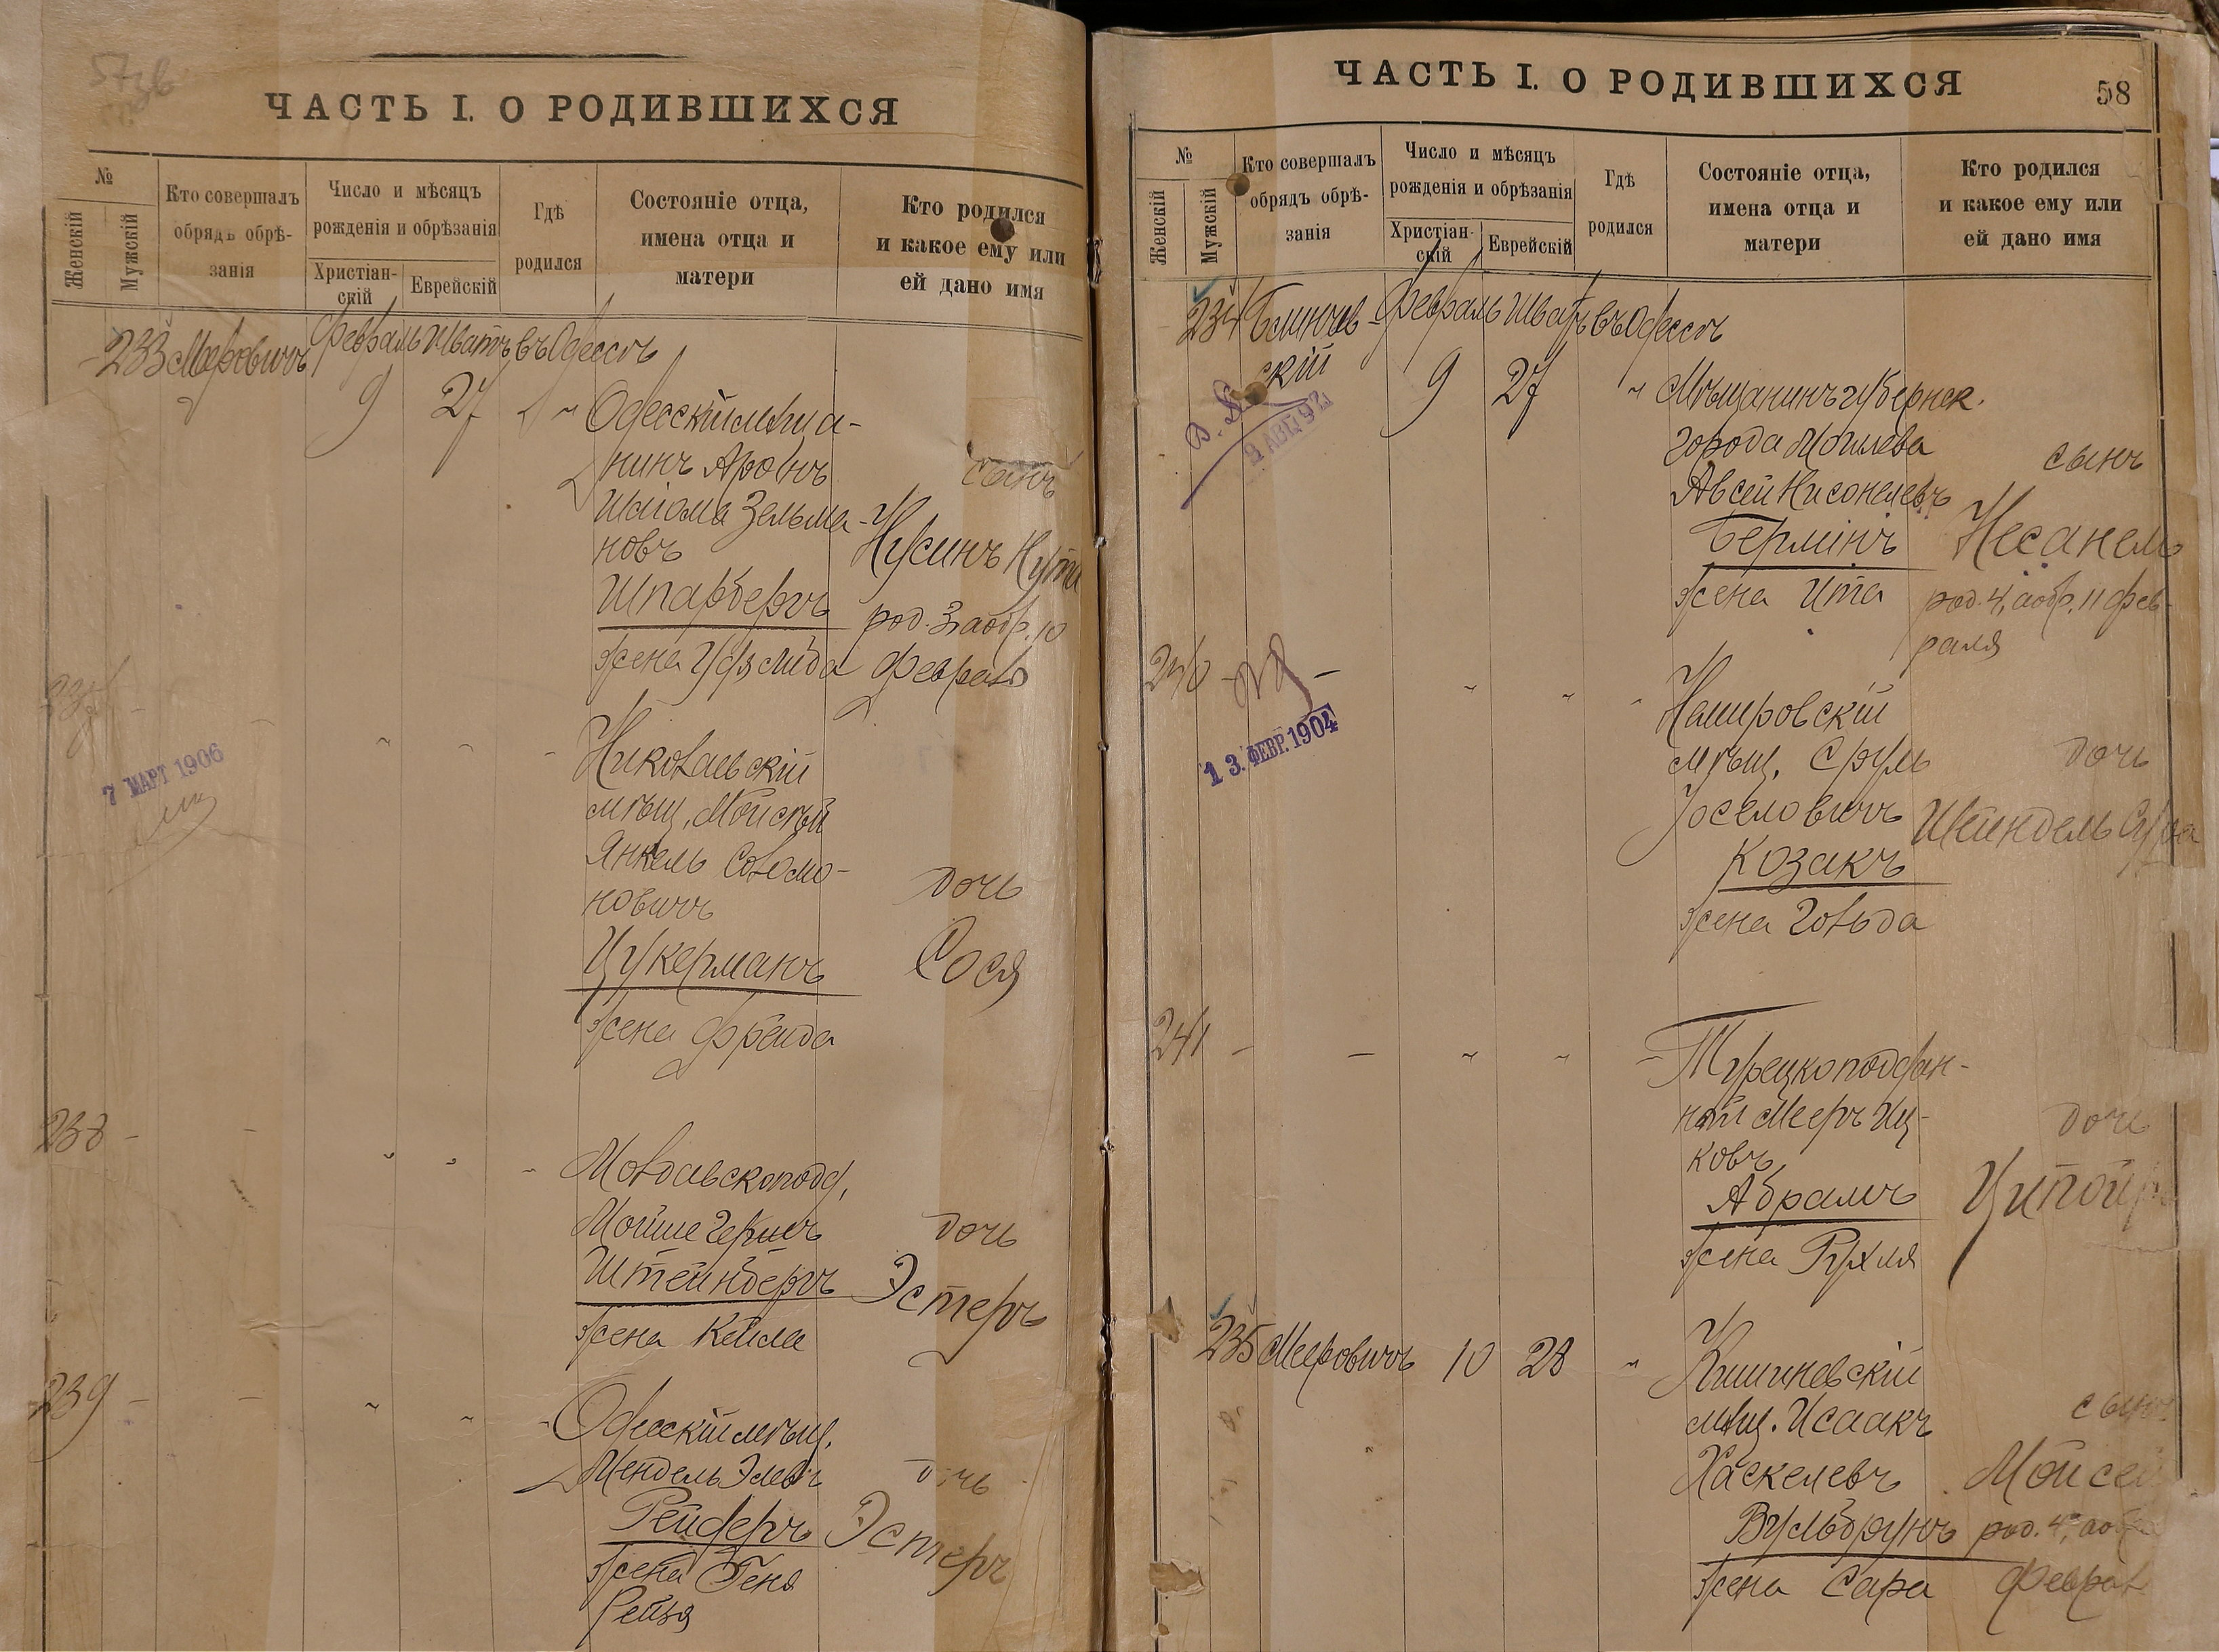 ЧАСТЬ I. О РОДИВШИХСЯ
№
Женскій
Мужскій
Кто совершалъ
обрядъ обрѣ-
занія
Число и мѣсяцъ
рожденія и обрѣзанія
Христіан-
скій
Еврейскій
Гдѣ
родился
Состояніе отца,
имена отца и
матери
Кто родился
и какое ему или
ей дано имя
233 Меровичъ Февраль Шватъ въ Одессѣ
9 27 " Одесскій мѣща-
нинъ Аронъ
Шлiома Зельма-
новъ
Шпарбергъ
жена
сынъ
Нусинъ Нута
род. 3, а обр. 10
Февраля
7 МАРТ 1906
" " " Николаевскій
мѣщ. Мойсѣй
Янкель Соломо-
новичъ
Цукерманъ
жена Фрейда
дочь
Сося
238 - - " " " Молдавскоподд.
Мойше Гершъ
Штейнбергъ
жена Кейла
дочь
Эстеръ
239 - - " " " Одесскій мѣщ.
Мендель
Рейдеръ
жена Геня
Рейзя
дочь
Эстеръ
ЧАСТЬ I. О РОДИВШИХСЯ
58
№
Женскій
Мужскій
Кто совершалъ
обрядъ обрѣ-
занія
Число и мѣсяцъ
рожденія и обрѣзанія
Христіан-
скій
Еврейскій
Гдѣ
родился
Состояніе отца,
имена отца и
матери
Кто родился
и какое ему или
ей дано имя
234 Февраль Шватъ въ Одессѣ
скій
9 27 " Мѣщанинъ губернск.
города Могилева
Авсей Нисонелевъ
Берминъ
жена Ита
сынъ
Несанель
род. 4, а обр. 11 фев-
раля
9 АВГ 92
240 - - " " "
мѣщ. Сруль
Іоселовичъ
Козакъ
жена Гольда
дочь
Шейндель Сура
13. ФЕВР. 1904
241 - - " " " Турецкоподдан-
ный Мееръ Иц-
ковъ
Абрамъ
жена Рухля
дочь
235 Мееровичъ 10 28 " Кишиневскій
мѣщ. Исаакъ
Хаскелевъ
Вульбрунъ
жена Сара
сынъ
Мойсей
род. 4, а обр.
Феврал